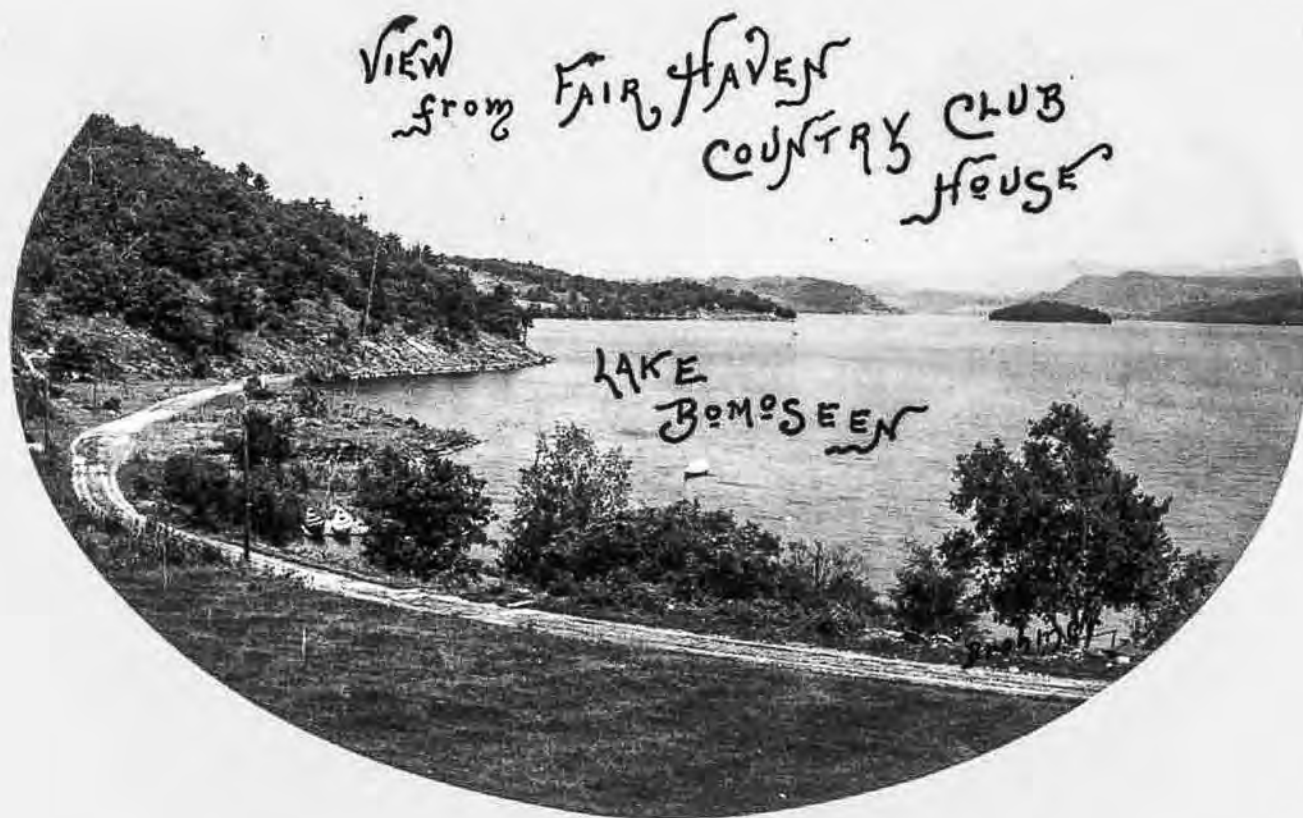 VIEW
from FAIR HAVEN
COUNTRY CLUB
HOUSE
LAKE
BOMOSEEN